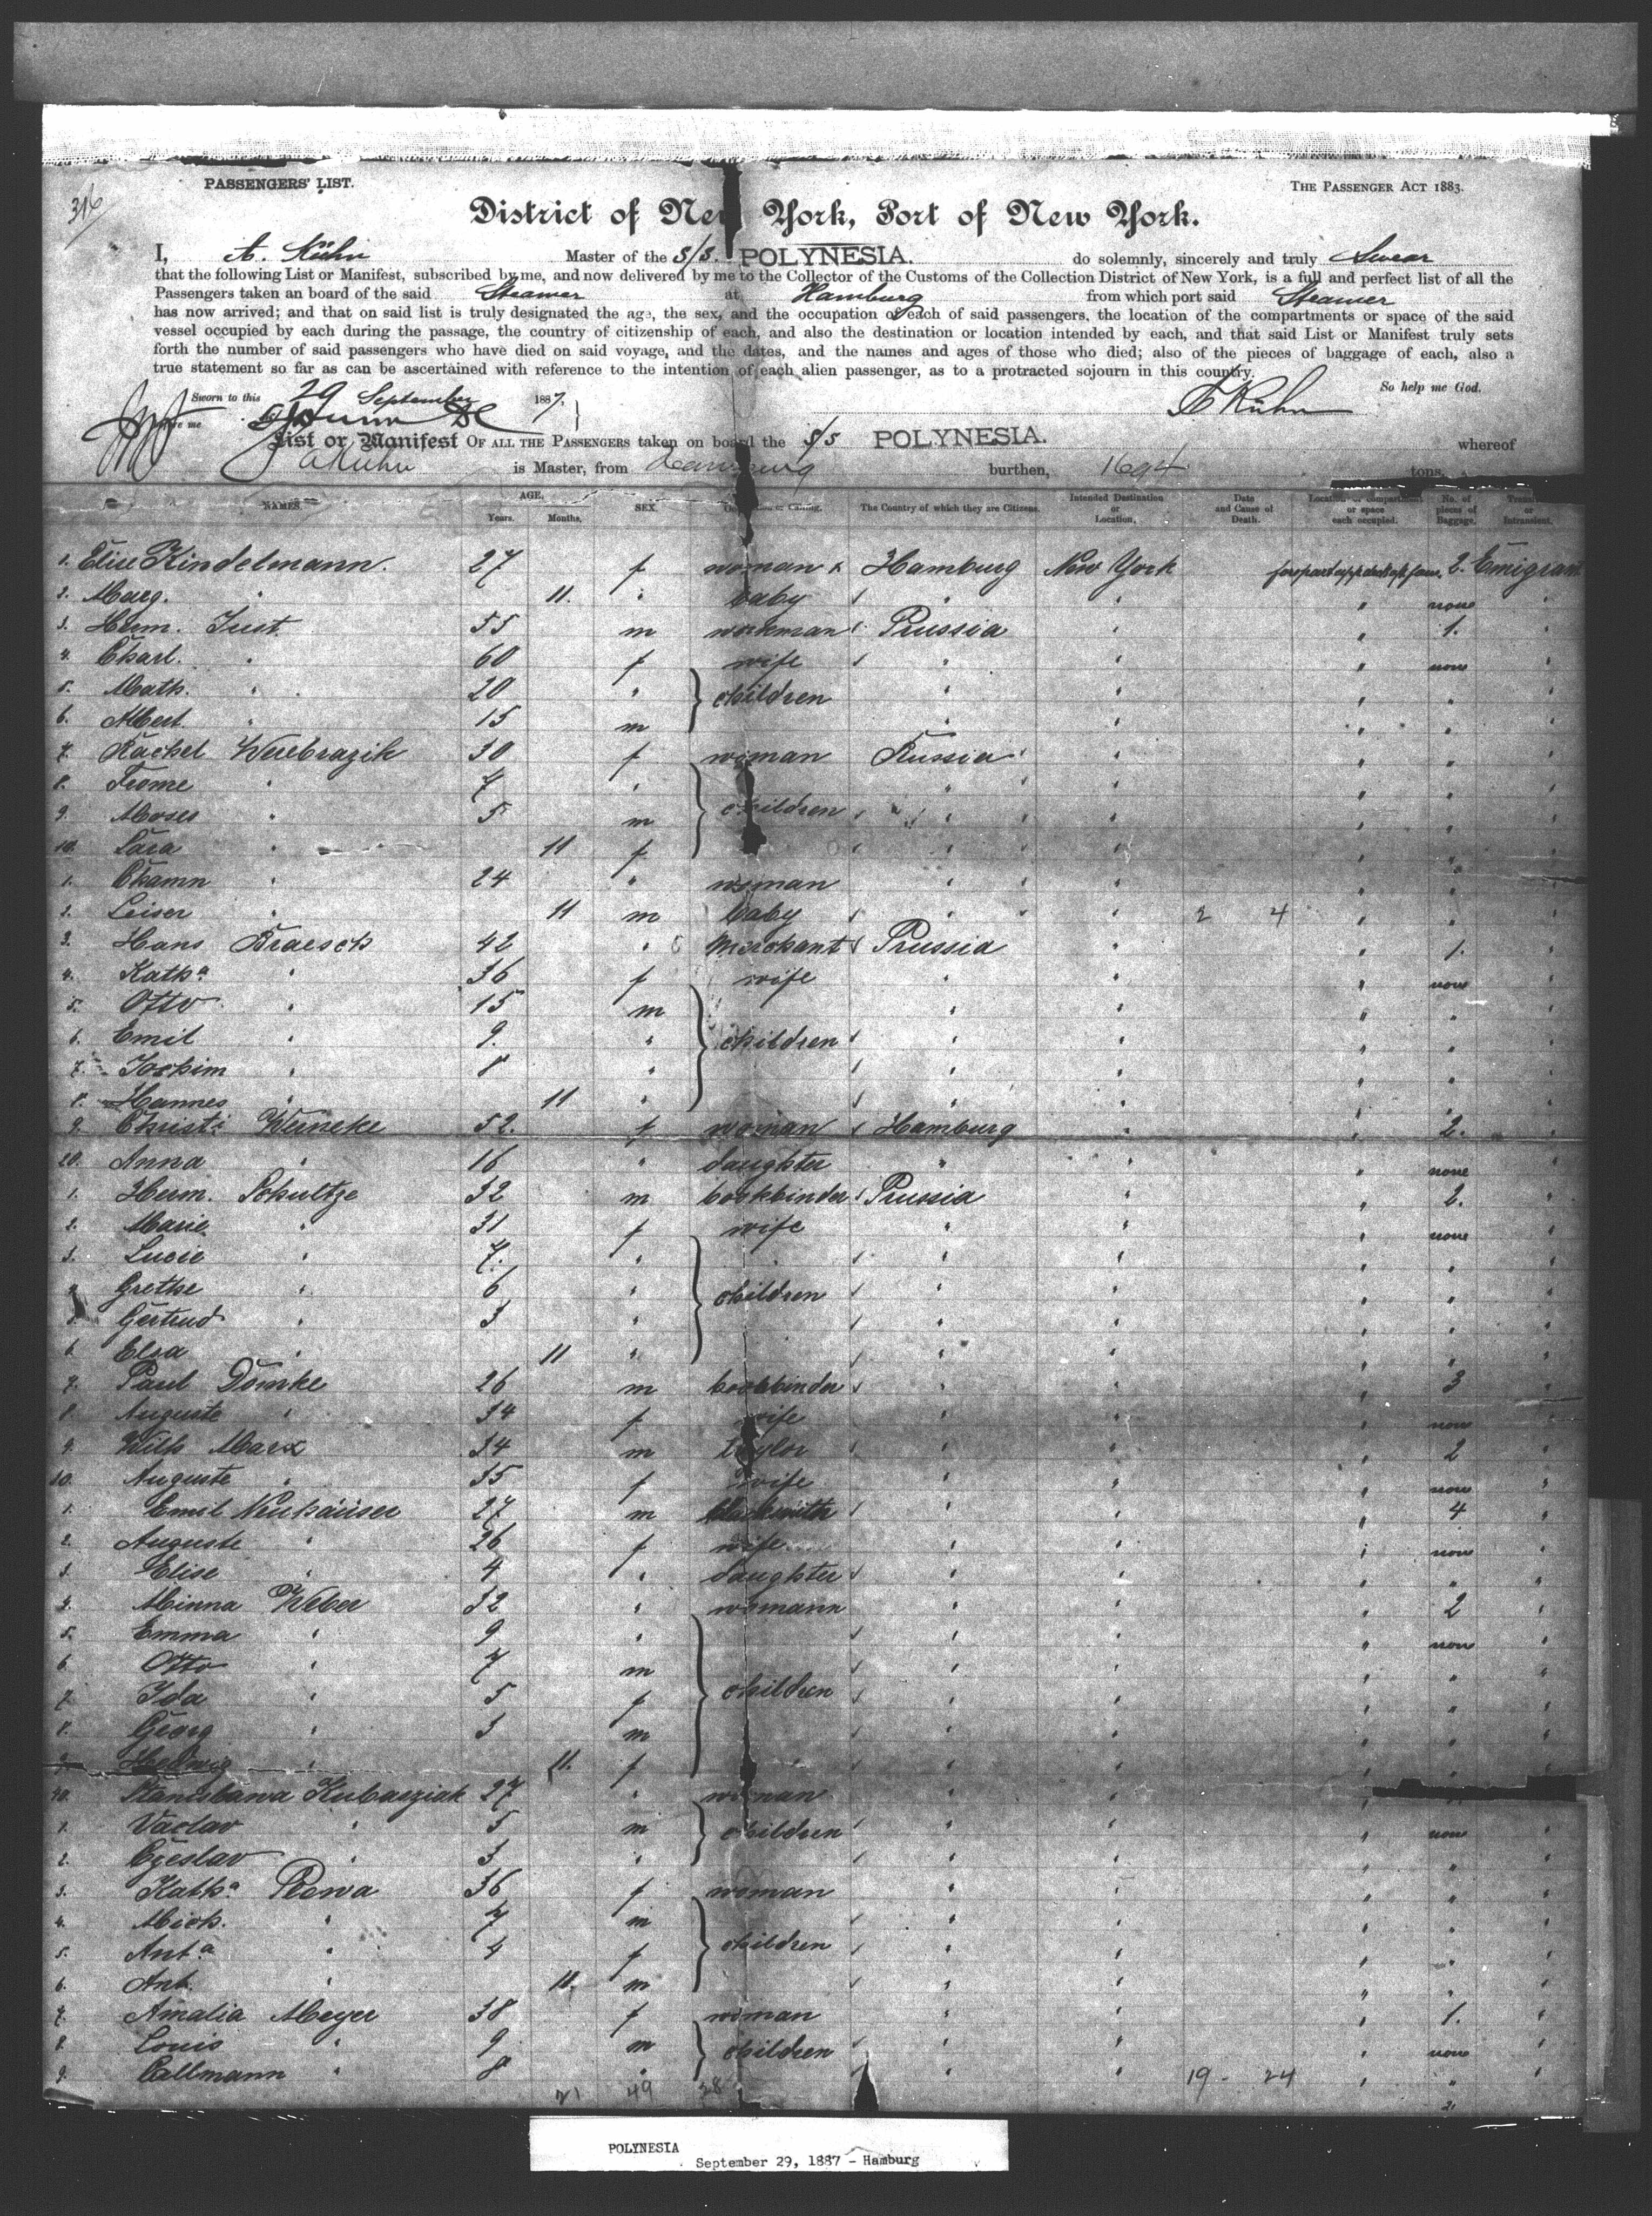 316
PASSENGERS' LIST.
THE PASSENGER ACT 1883.
District of New York, Port of New York.
I, A. Kühn Master of the S/S. POLYNESIA. do solemnly, sincerely and truly Swear
that the following List or Manifest, subscribed by me, and now delivered by me to the Collector of the Customs of the Collection District of New York, is a full and perfect list of all the
Passengers taken an board of the said Steamer at Hamburg from which port said Steamer
has now arrived; and that on said list is truly designated the age, the sex, and the occupation of each of said passengers, the location of the compartments or space of the said
vessel occupied by each during the passage, the country of citizenship of each, and also the destination or location intended by each, and that said List or Manifest truly sets
forth the number of said passengers who have died on said voyage, and the dates, and the names and ages of those who died; also of the pieces of baggage of each, also a
true statement so far as can be ascertained with reference to the intention of each alien passenger, as to a protracted sojourn in this country.
So help me God.
Sworn to this 29 September 1887,
A Kühn
me
List or Manifest OF ALL THE PASSENGERS taken on board the S/S POLYNESIA. whereof
A Kühn is Master, from Hamburg burthen, 1694 tons.
NAMES. AGE. Years. Months. SEX. Occupation or Calling. The Country of which they are Citizens. Intended Destination or Location. Date and Cause of Death. Location of compartment or space each occupied. No. of pieces of Baggage. Transient or Intransient.
1. Elise Kindelmann. 27 f woman Hamburg New York 2. Emigrant
2. Marg. " 11. " baby " " " none "
3. Herm. Just 55 m workman Prussia " " 1. "
4. Charl. " 60 f wife " " " none "
5. Math. " 20 " children " " " " "
6. Albert. " 15 m " " " " "
7. Rachel 30 f woman Russia " " " "
8. Frome " 7 " children " " " " "
9. Moses " 5 m " " " " "
10. Sara " 11 f " " " " "
1. Chamn " 24 " woman " " " " "
2. Leiser " 11 m baby " " 2 4 " " "
3. Hans Braesch 42 " merchant Prussia " " 1. "
4. Kath.a " 36 f wife " " " none "
5. Otto " 15 m children " " " " "
6. Emil " 9. " " " " " "
7. Jochim " 8 " " " " " "
8. Hannes " 11 " " " " " "
9. Christ. Werneke 52. f woman Hamburg " " 2. "
20. Anna " 16 " daughter " " " none "
1. Herm. Schultze 32 m bookbinder Prussia " " 2. "
2. Marie " 31 f wife " " " none "
3. Lucie " 7. " children " " " " "
4. Grethe " 6 " " " " " "
5. Gertrud " 3 " " " " " "
6. Elsa " 11 " " " " " "
7. Paul Domke 26 m bookbinder " " " 3 "
8. Auguste " 34 f wife " " " none "
9. Wilh Marx 34 m taylor " " " 2 "
30. Auguste " 35 f wife " " " none "
1. Emil Neuhäuser 27 m blacksmith " " " 4 "
2. Auguste " 26 f wife " " " none "
3. Elise " 4 " daughter " " " " "
4. Minna Weber 32 " womann " " " 2 "
5. Emma " 9 " children " " " none "
6. Otto " 7 m " " " " "
7. Ida " 5 f " " " " "
8. Georg " 3 m " " " " "
9. Hedwig " 11. f " " " " "
40. Stanislawa Kubasziak 27 " woman " " " " "
1. Vaclav " 5 m children " " " none "
2. Czeslav " 3 " " " " " "
3. Kath.a Plowa 36 f woman " " " " "
4. Mich. " 7 m children " " " " "
5. Ant.a " 4 f " " " " "
6. Ant. " 11. m " " " " "
7. Amalia Meyer 38 f woman " " " 1. "
8. Louis " 9 m children " " " none "
9. Callmann " 8 " " " 19 - 24 " " "
21 49 28 21
POLYNESIA
September 29, 1887 - Hamburg